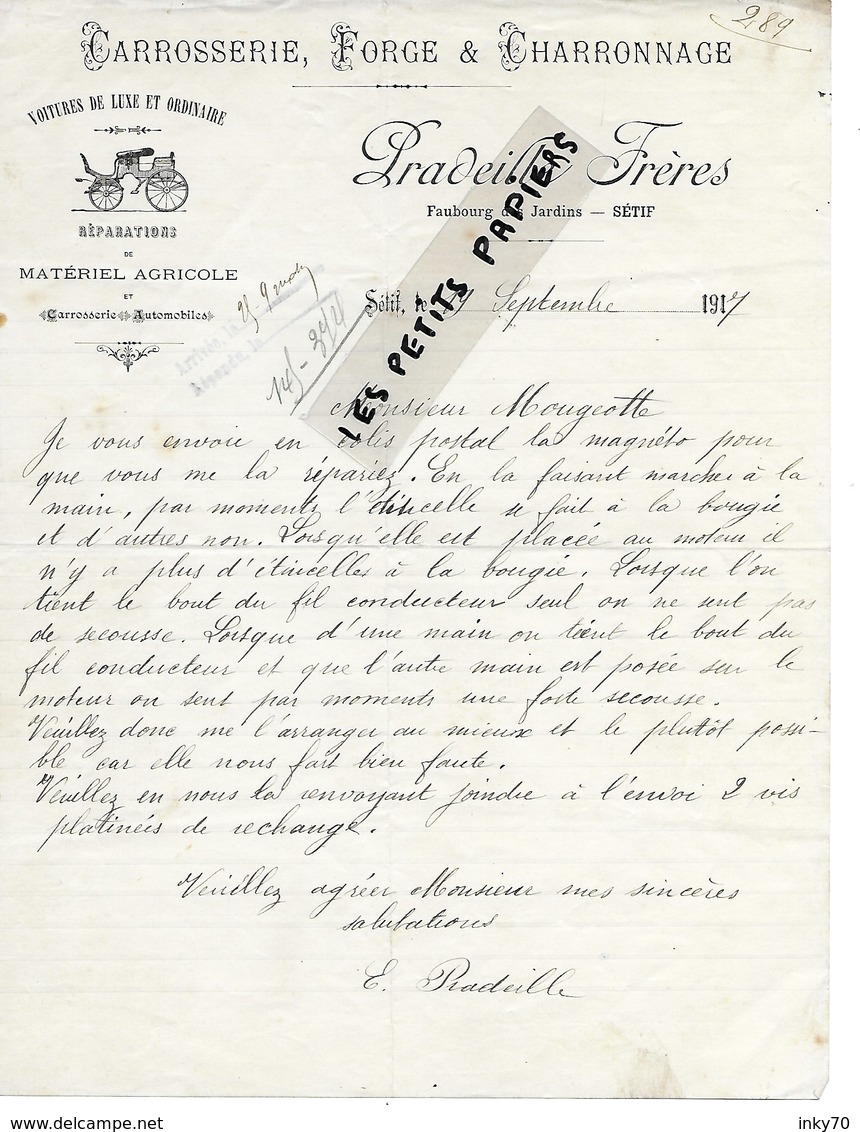 289
CARROSSERIE, FORGE & CHARRONNAGE
VOITURES DE LUXE ET ORDINAIRE
RÉPARATIONS
DE
MATÉRIEL AGRICOLE
ET
Carrosserie Automobiles
Pradeille Frères
Faubourg des Jardins — SÉTIF
Sétif, le Septembre 1917
Arrivée, le
Répondu, le
LES PETITS PAPIERS
Monsieur Mougeotte
Je vous envoie en colis postal la magnéto pour
que vous me la répariez. En la faisant marcher à la
main, par moments l'étincelle se fait à la bougie
et d'autres non. Lorsqu'elle est placée au moteur il
n'y a plus d'étincelles à la bougie. Lorsque l'on
tient le bout du fil conducteur seul on ne sent pas
de secousse. Lorsque d'une main on tient le bout du
fil conducteur et que l'autre main est posée sur le
moteur on sent par moments une forte secousse.
Veuillez donc me l'arranger au mieux et le plutôt possi-
ble car elle nous fait bien faute.
Veuillez en nous la renvoyant joindre à l'envoi 2 vis
platinées de rechange.
Veuillez agréer Monsieur mes sincères
salutations
E. Pradeille
www.delcampe.net
inky70